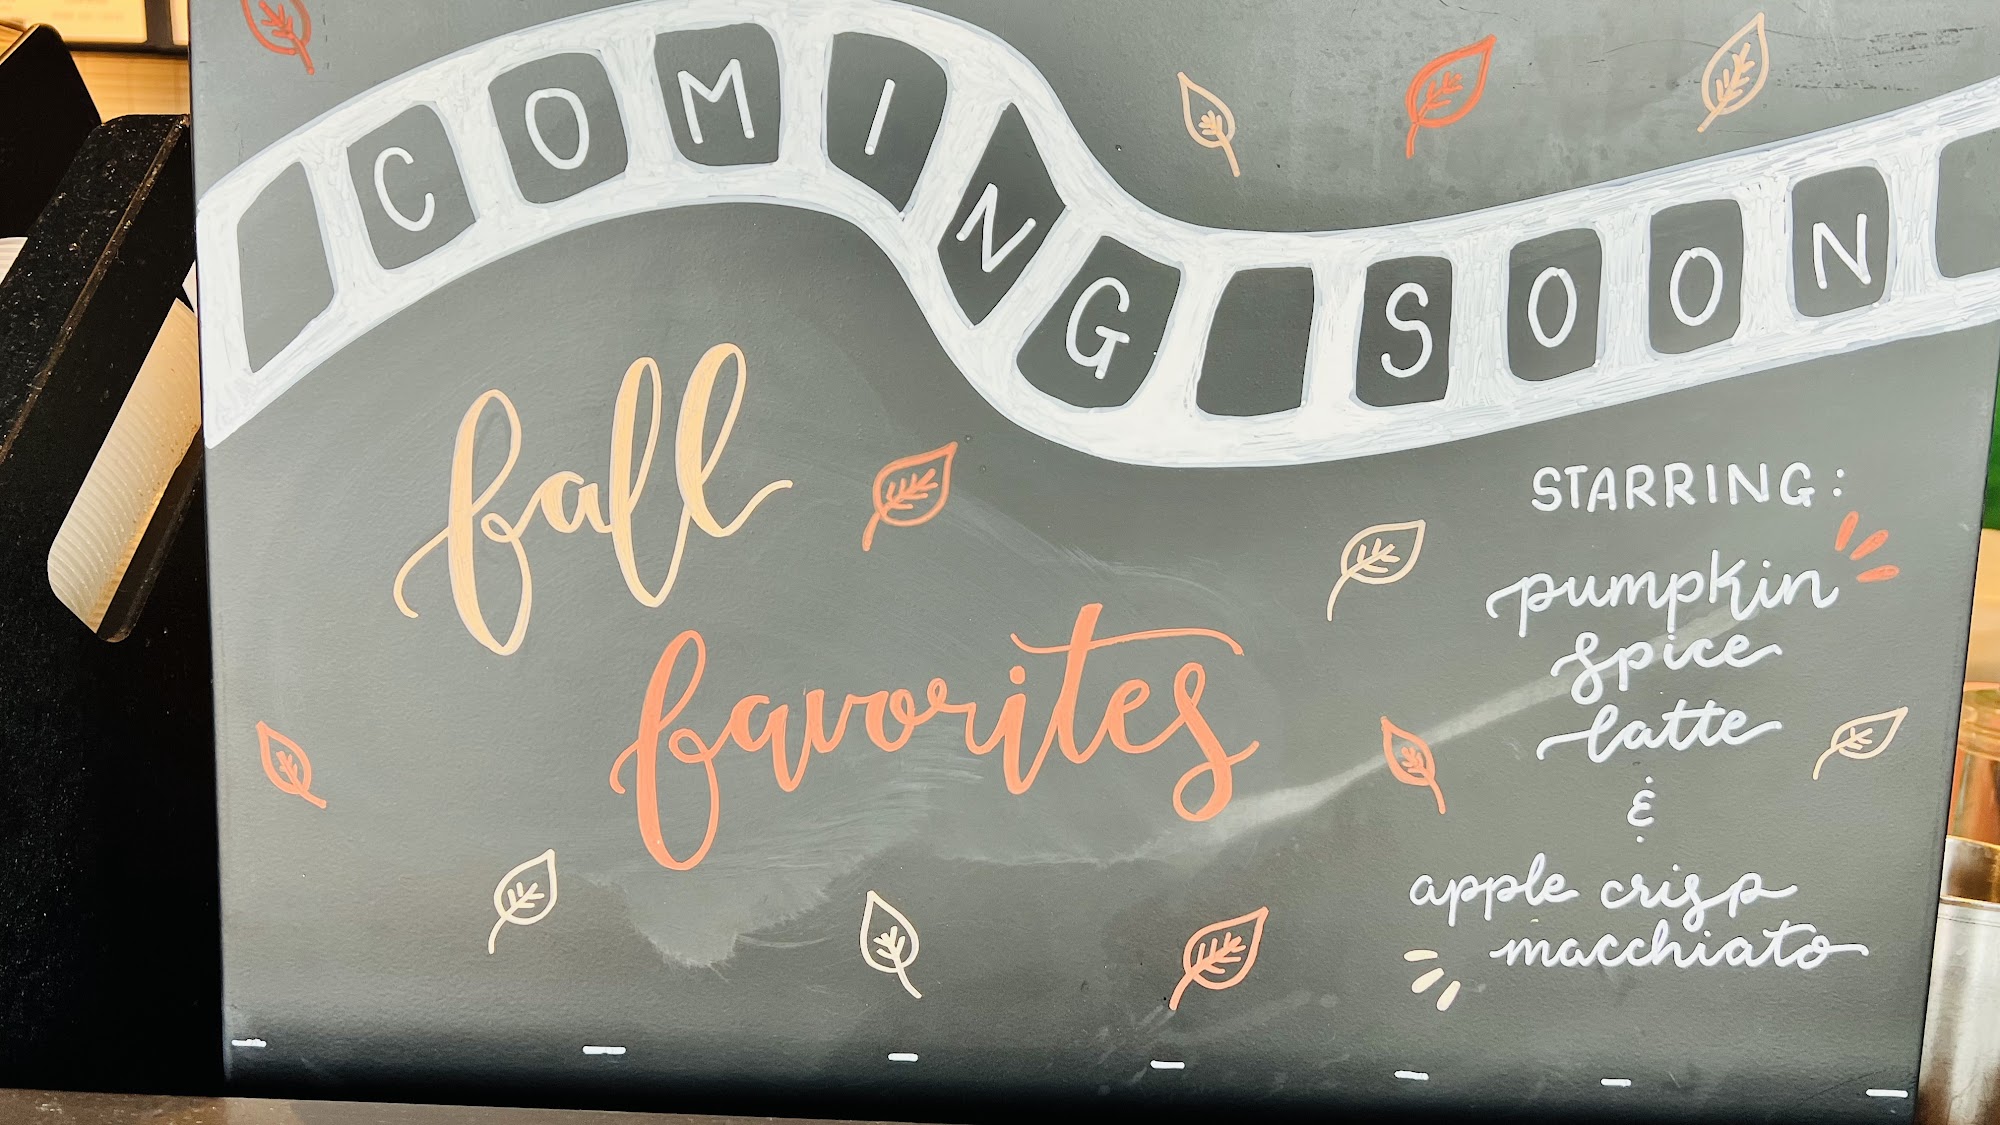 COMING SOON
fall
favorites
STARRING:
pumpkin
spice
latte
&
apple crisp
macchiato